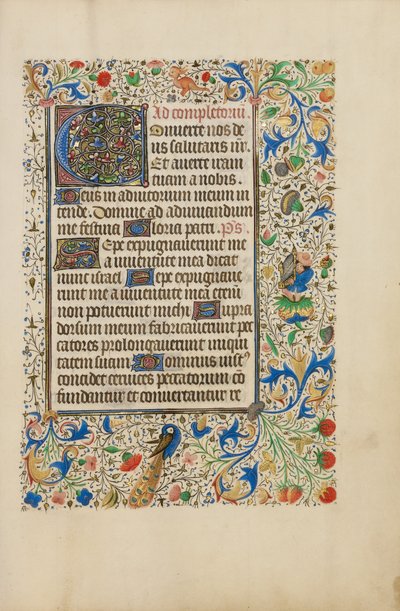 Ad completoriu.
Conuerte nos de
us salutaris nr̄.
Et auerte iram
tuam a nobis.
Deus in adiutorium meum in
tende. Domine ad adiuuandum
me festina Gloria patri. Ps̄.
Sepe expugnauerunt me
a iuuentute mea dicat
nunc israel Sepe expugnaue
runt me a iuuentute mea etenī
non potuerunt michi Supra
dorsum meum fabricauerunt pec
catores prolongauerunt iniqui
tatem suam Dominus iustꝰ
concidet ceruices peccatorum cō
fundantur et conuertantur re